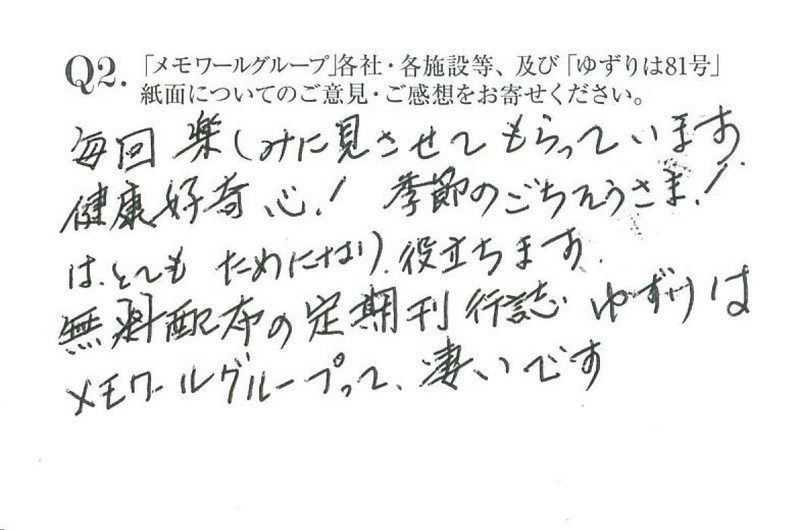 Q2.「メモワールグループ」各社・各施設等、及び「ゆずりは81号」
紙面についてのご意見・ご感想をお寄せください。
毎回 楽しみに見させてもらっています
健康好奇心! 季節のごちそうさま!
は、とても ためになり、役立ちます。
無料配布の定期刊行誌 ゆずりは
メモワールグループって、凄いです